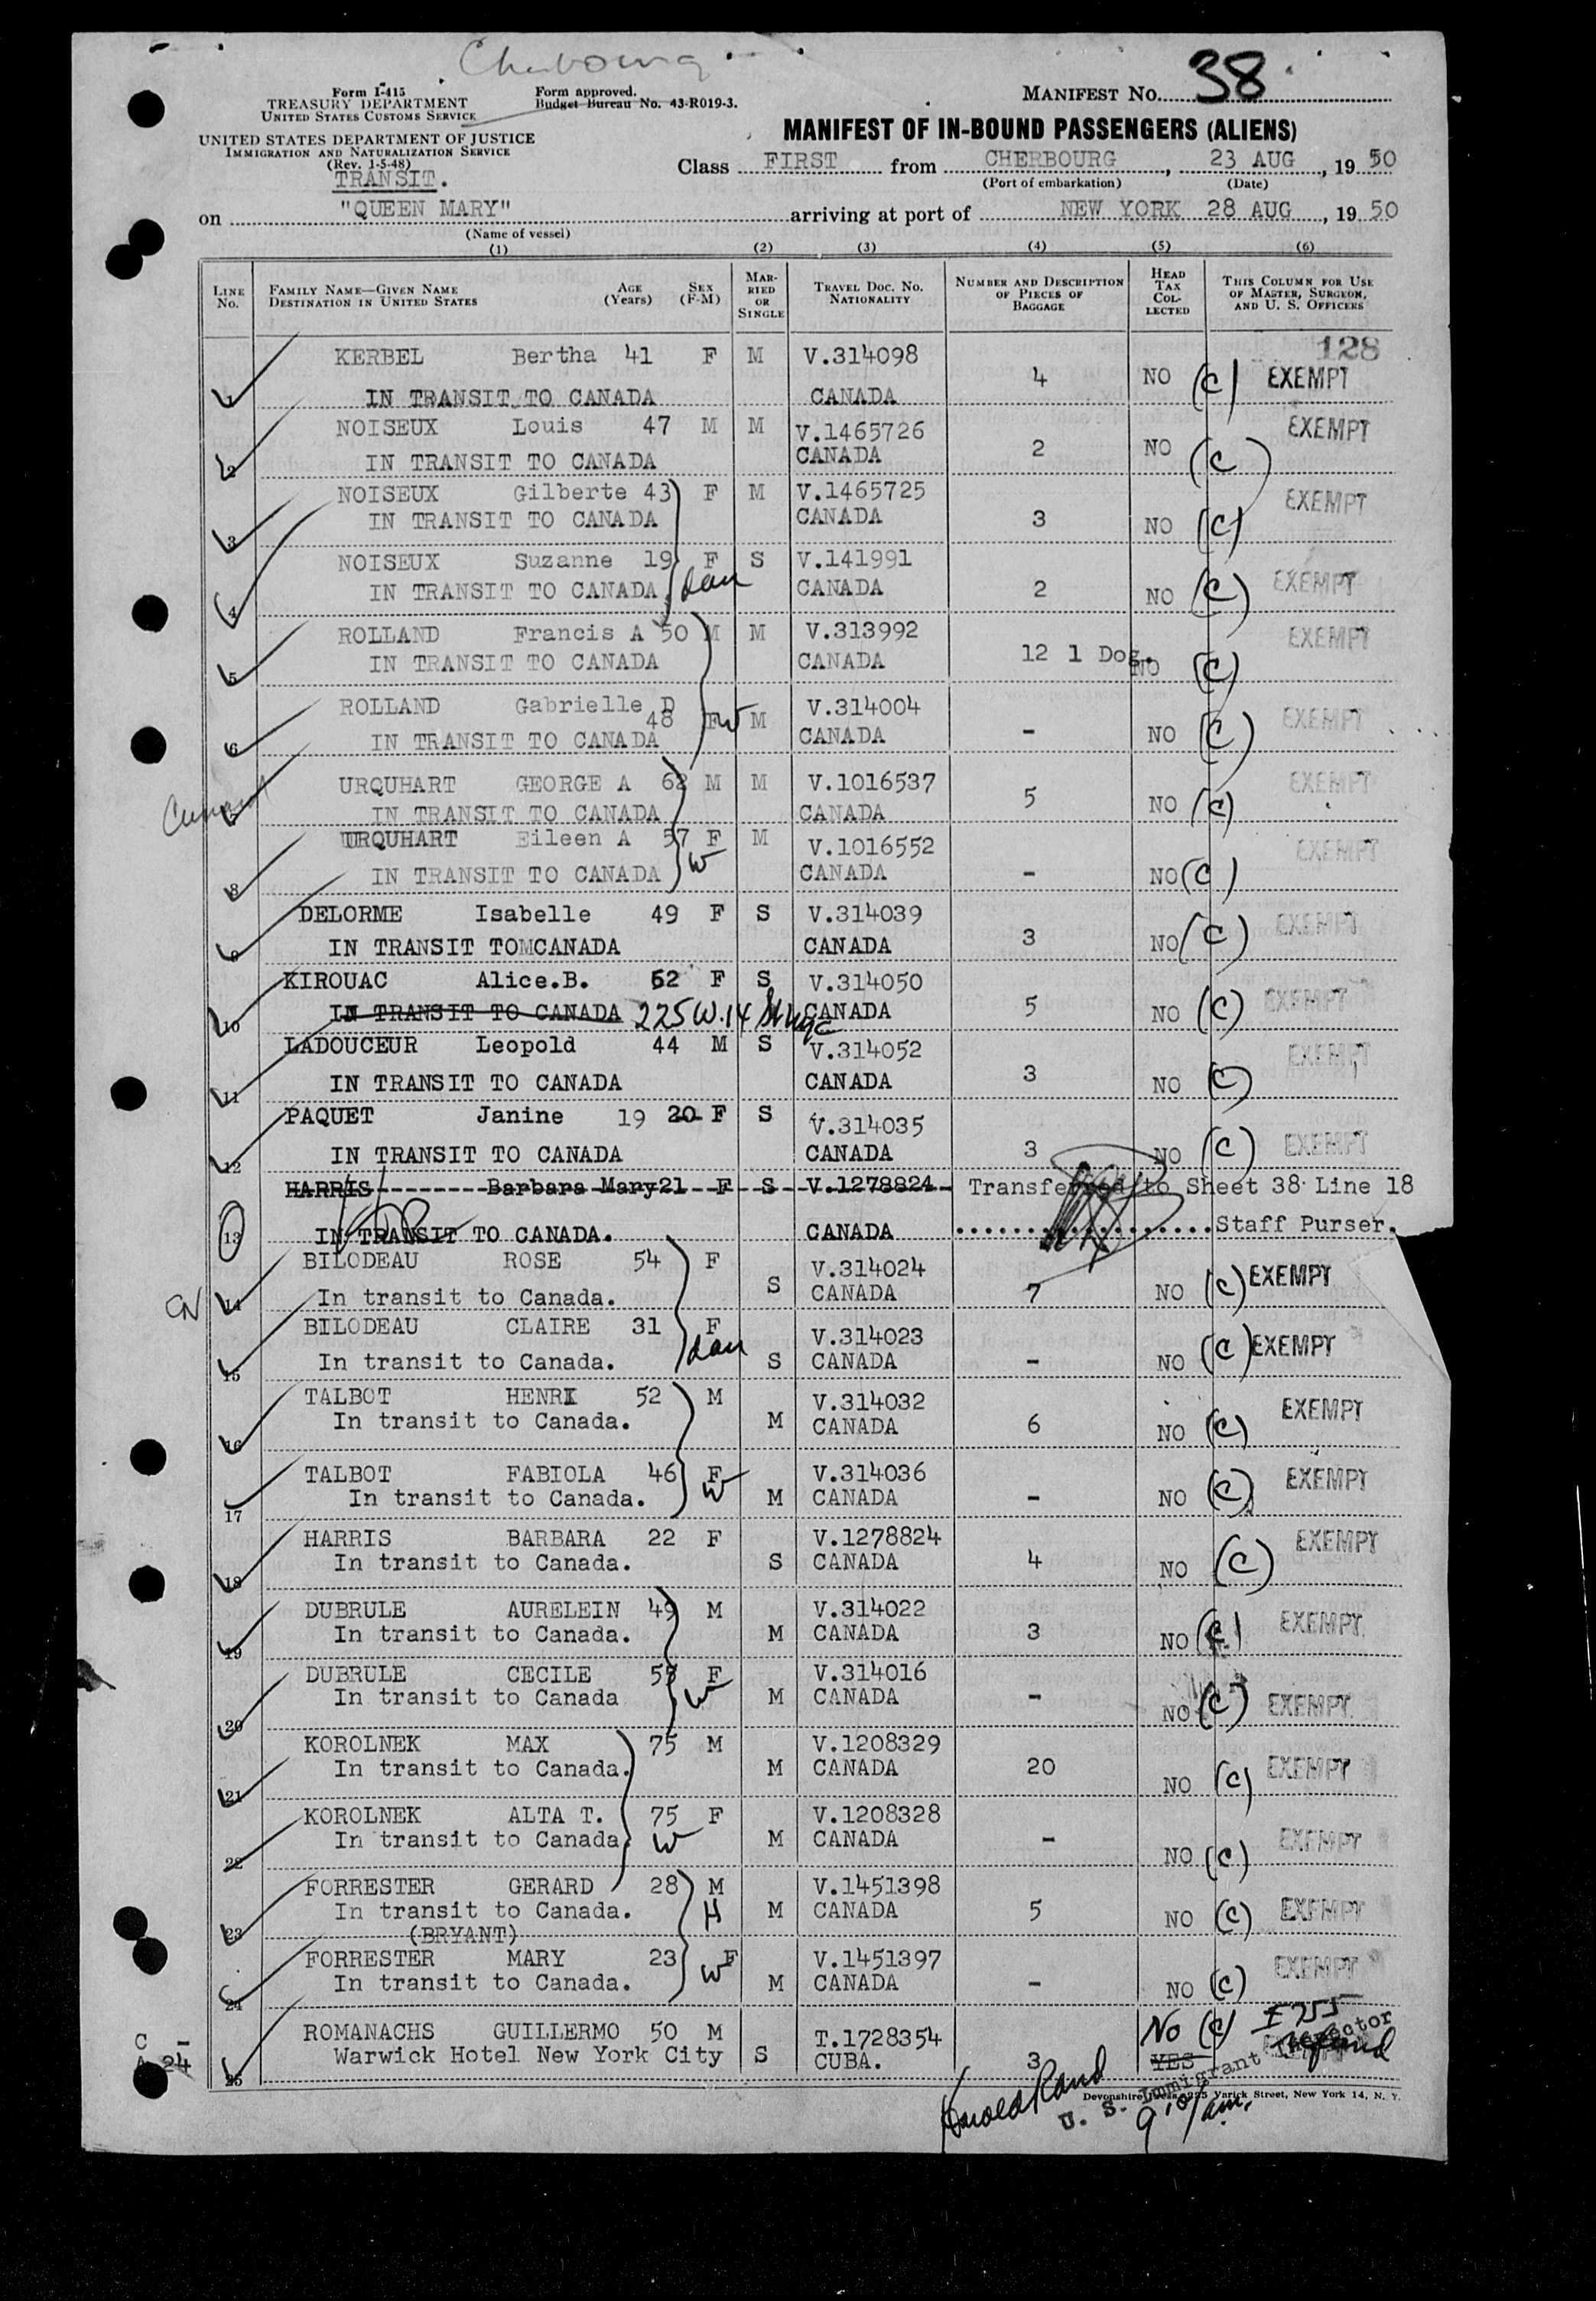 Cherbourg
Form I-415
TREASURY DEPARTMENT
UNITED STATES CUSTOMS SERVICE
Form approved.
Budget Bureau No. 43-R019-3.
MANIFEST NO. 38
UNITED STATES DEPARTMENT OF JUSTICE
IMMIGRATION AND NATURALIZATION SERVICE
(Rev. 1-5-48)
TRANSIT.
MANIFEST OF IN-BOUND PASSENGERS (ALIENS)
Class FIRST from CHERBOURG, 23 AUG, 19 50
(Port of embarkation) (Date)
on "QUEEN MARY" arriving at port of NEW YORK 28 AUG, 19 50
(Name of vessel)
(1) (2) (3) (4) (5) (6)
LINE NO. FAMILY NAME—GIVEN NAME DESTINATION IN UNITED STATES AGE (Years) SEX (F-M) MARRIED OR SINGLE TRAVEL DOC. NO. NATIONALITY NUMBER AND DESCRIPTION OF PIECES OF BAGGAGE HEAD TAX COLLECTED THIS COLUMN FOR USE OF MASTER, SURGEON, AND U. S. OFFICERS
128
1 KERBEL Bertha 41 F M V.314098 4 NO (C) EXEMPT
IN TRANSIT TO CANADA CANADA
2 NOISEUX Louis 47 M M V.1465726 2 NO (C) EXEMPT
IN TRANSIT TO CANADA CANADA
3 NOISEUX Gilberte 43 F M V.1465725 3 NO (C) EXEMPT
IN TRANSIT TO CANADA CANADA
4 NOISEUX Suzanne 19 F S V.141991 2 NO (C) EXEMPT
IN TRANSIT TO CANADA dau CANADA
5 ROLLAND Francis A 50 M M V.313992 12 1 Dog. NO (C) EXEMPT
IN TRANSIT TO CANADA CANADA
6 ROLLAND Gabrielle D 48 F W M V.314004 - NO (C) EXEMPT
IN TRANSIT TO CANADA CANADA
7 URQUHART GEORGE A 62 M M V.1016537 5 NO (C) EXEMPT
IN TRANSIT TO CANADA CANADA
8 URQUHART Eileen A 57 F W M V.1016552 - NO (C) EXEMPT
IN TRANSIT TO CANADA CANADA
9 DELORME Isabelle 49 F S V.314039 3 NO (C) EXEMPT
IN TRANSIT TOMCANADA CANADA
10 KIROUAC Alice.B. 52 F S V.314050 5 NO (C) EXEMPT
IN TRANSIT TO CANADA 225 W. 14 St nyc CANADA
11 LADOUCEUR Leopold 44 M S V.314052 3 NO (C) EXEMPT
IN TRANSIT TO CANADA CANADA
12 PAQUET Janine 19 20 F S V.314035 3 NO (C) EXEMPT
IN TRANSIT TO CANADA CANADA
13 HARRIS Barbara Mary 21 F S V.1278824 Transferred to Sheet 38 Line 18
IN TRANSIT TO CANADA. CANADA Staff Purser.
14 BILODEAU ROSE 54 F S V.314024 7 NO (C) EXEMPT
In transit to Canada. CANADA
15 BILODEAU CLAIRE 31 F dau S V.314023 - NO (C) EXEMPT
In transit to Canada. CANADA
16 TALBOT HENRI 52 M M V.314032 6 NO (C) EXEMPT
In transit to Canada. CANADA
17 TALBOT FABIOLA 46 F W M V.314036 - NO (C) EXEMPT
In transit to Canada. CANADA
18 HARRIS BARBARA 22 F S V.1278824 4 NO (C) EXEMPT
In transit to Canada. CANADA
19 DUBRULE AURELEIN 49 M M V.314022 3 NO (C) EXEMPT
In transit to Canada. CANADA
20 DUBRULE CECILE F W M V.314016 - NO (C) EXEMPT
In transit to Canada CANADA
21 KOROLNEK MAX 75 M M V.1208329 20 NO (C) EXEMPT
In transit to Canada. CANADA
22 KOROLNEK ALTA T. 75 F W M V.1208328 - NO (C) EXEMPT
In transit to Canada. CANADA
23 FORRESTER GERARD 28 M H M V.1451398 5 NO (C) EXEMPT
In transit to Canada. CANADA
(BRYANT)
24 FORRESTER MARY 23 F W M V.1451397 - NO (C) EXEMPT
In transit to Canada. CANADA
25 ROMANACHS GUILLERMO 50 M S T.1728354 3 No (C) YES
Warwick Hotel New York City CUBA.
C -
24
Harold Rand
U. S. Immigrant Inspector
Devonshire 225 Varick Street, New York 14, N. Y.